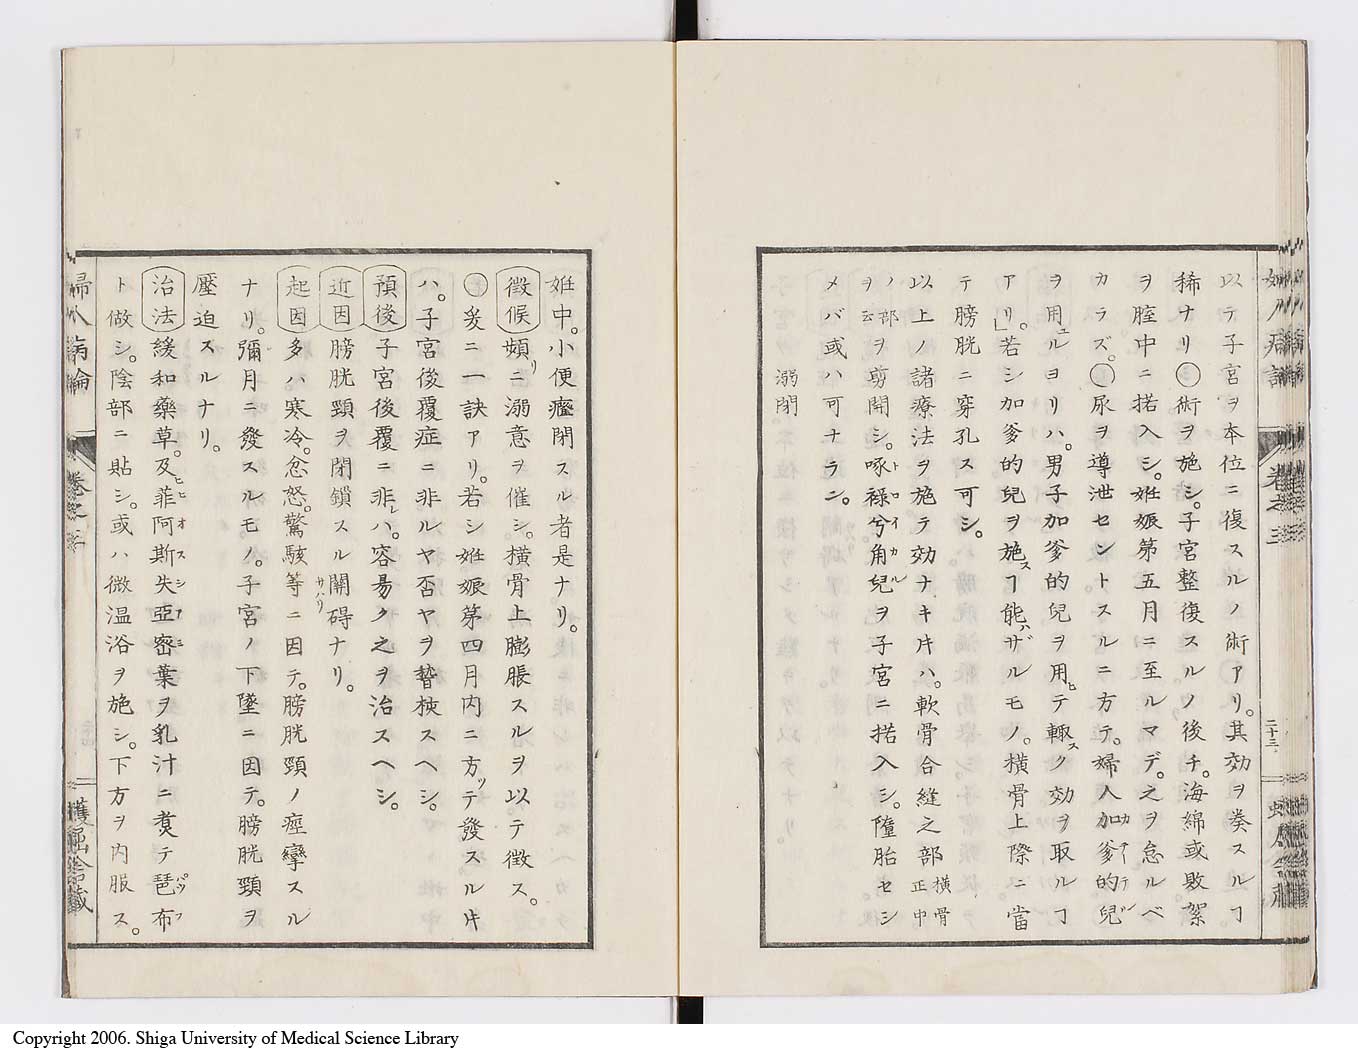 以テ子宮ヲ本位ニ復スルノ術アリ。其効ヲ奏スルヿ
稀ナリ〇術ヲ施シ。子宮整復スルノ後チ。海綿或敗絮
ヲ腟中ニ搭入シ。姙娠第五月ニ至ルマデ。之ヲ怠ルベ
カラズ。〇尿ヲ導泄セントスルニ方テ。婦人加爹的兒
ヲ用ルヨリハ。男子加爹的兒ヲ用ヒテ輙ク効ヲ取ルヿ
アリ。」若シ加爹的兒ヲ施スヿ能ハザルモノ。横骨上際ニ當
テ膀胱ニ穿孔ス可シ。
以上ノ諸療法ヲ施テ効ナキ片ハ。軟骨合縫之部横骨正中
ノ部ヲ云ヲ剪開シ。啄祿兮角兒ヲ子宮ニ搭入シ。墮胎セシ
メバ或ハ可ナラン。
溺閉
姙中。小便癃閉スル者是ナリ。
徴候 頻リニ溺意ヲ催シ。横骨上膨脹スルヲ以テ徴ス。
〇爰ニ一訣アリ。若シ姙娠第四月内ニ方ツテ發スル片
ハ。子宮後覆症ニ非ルヤ否ヤヲ瞥檢スヘシ。
預後 子宮後覆ニ非レハ。容易ク之ヲ治スヘシ。
近因 膀胱頸ヲ閉鎖スル關碍ナリ。
起因 多ハ寒冷。忿怒。驚駭等ニ因テ。膀胱頸ノ痙攣スル
ナリ。彌月ニ發スルモノ。子宮ノ下墜ニ因テ。膀胱頸ヲ
壓迫スルナリ。
治法 緩和藥草。及ヒ菲阿斯失亞密葉ヲ乳汁ニ煑テ琶布
ト做シ。陰部ニ貼シ。或ハ微温浴ヲ施シ。下方ヲ内服ス。
卷之三
二十三
Copyright 2006. Shiga University of Medical Science Library